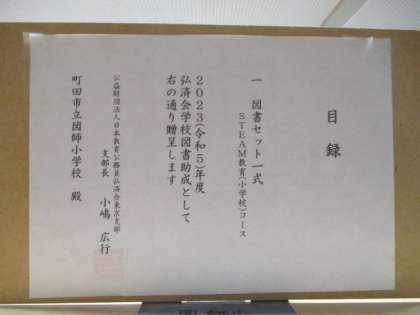 目録
一　図書セット一式
ＳＴＥＡＭ教育(小学校)コース
２０２３(令和５)年度
弘済会学校図書助成として
右の通り贈呈します
公益財団法人日本教育公務員弘済会東京支部
支部長　小嶋　広行
町田市立図師小学校　殿